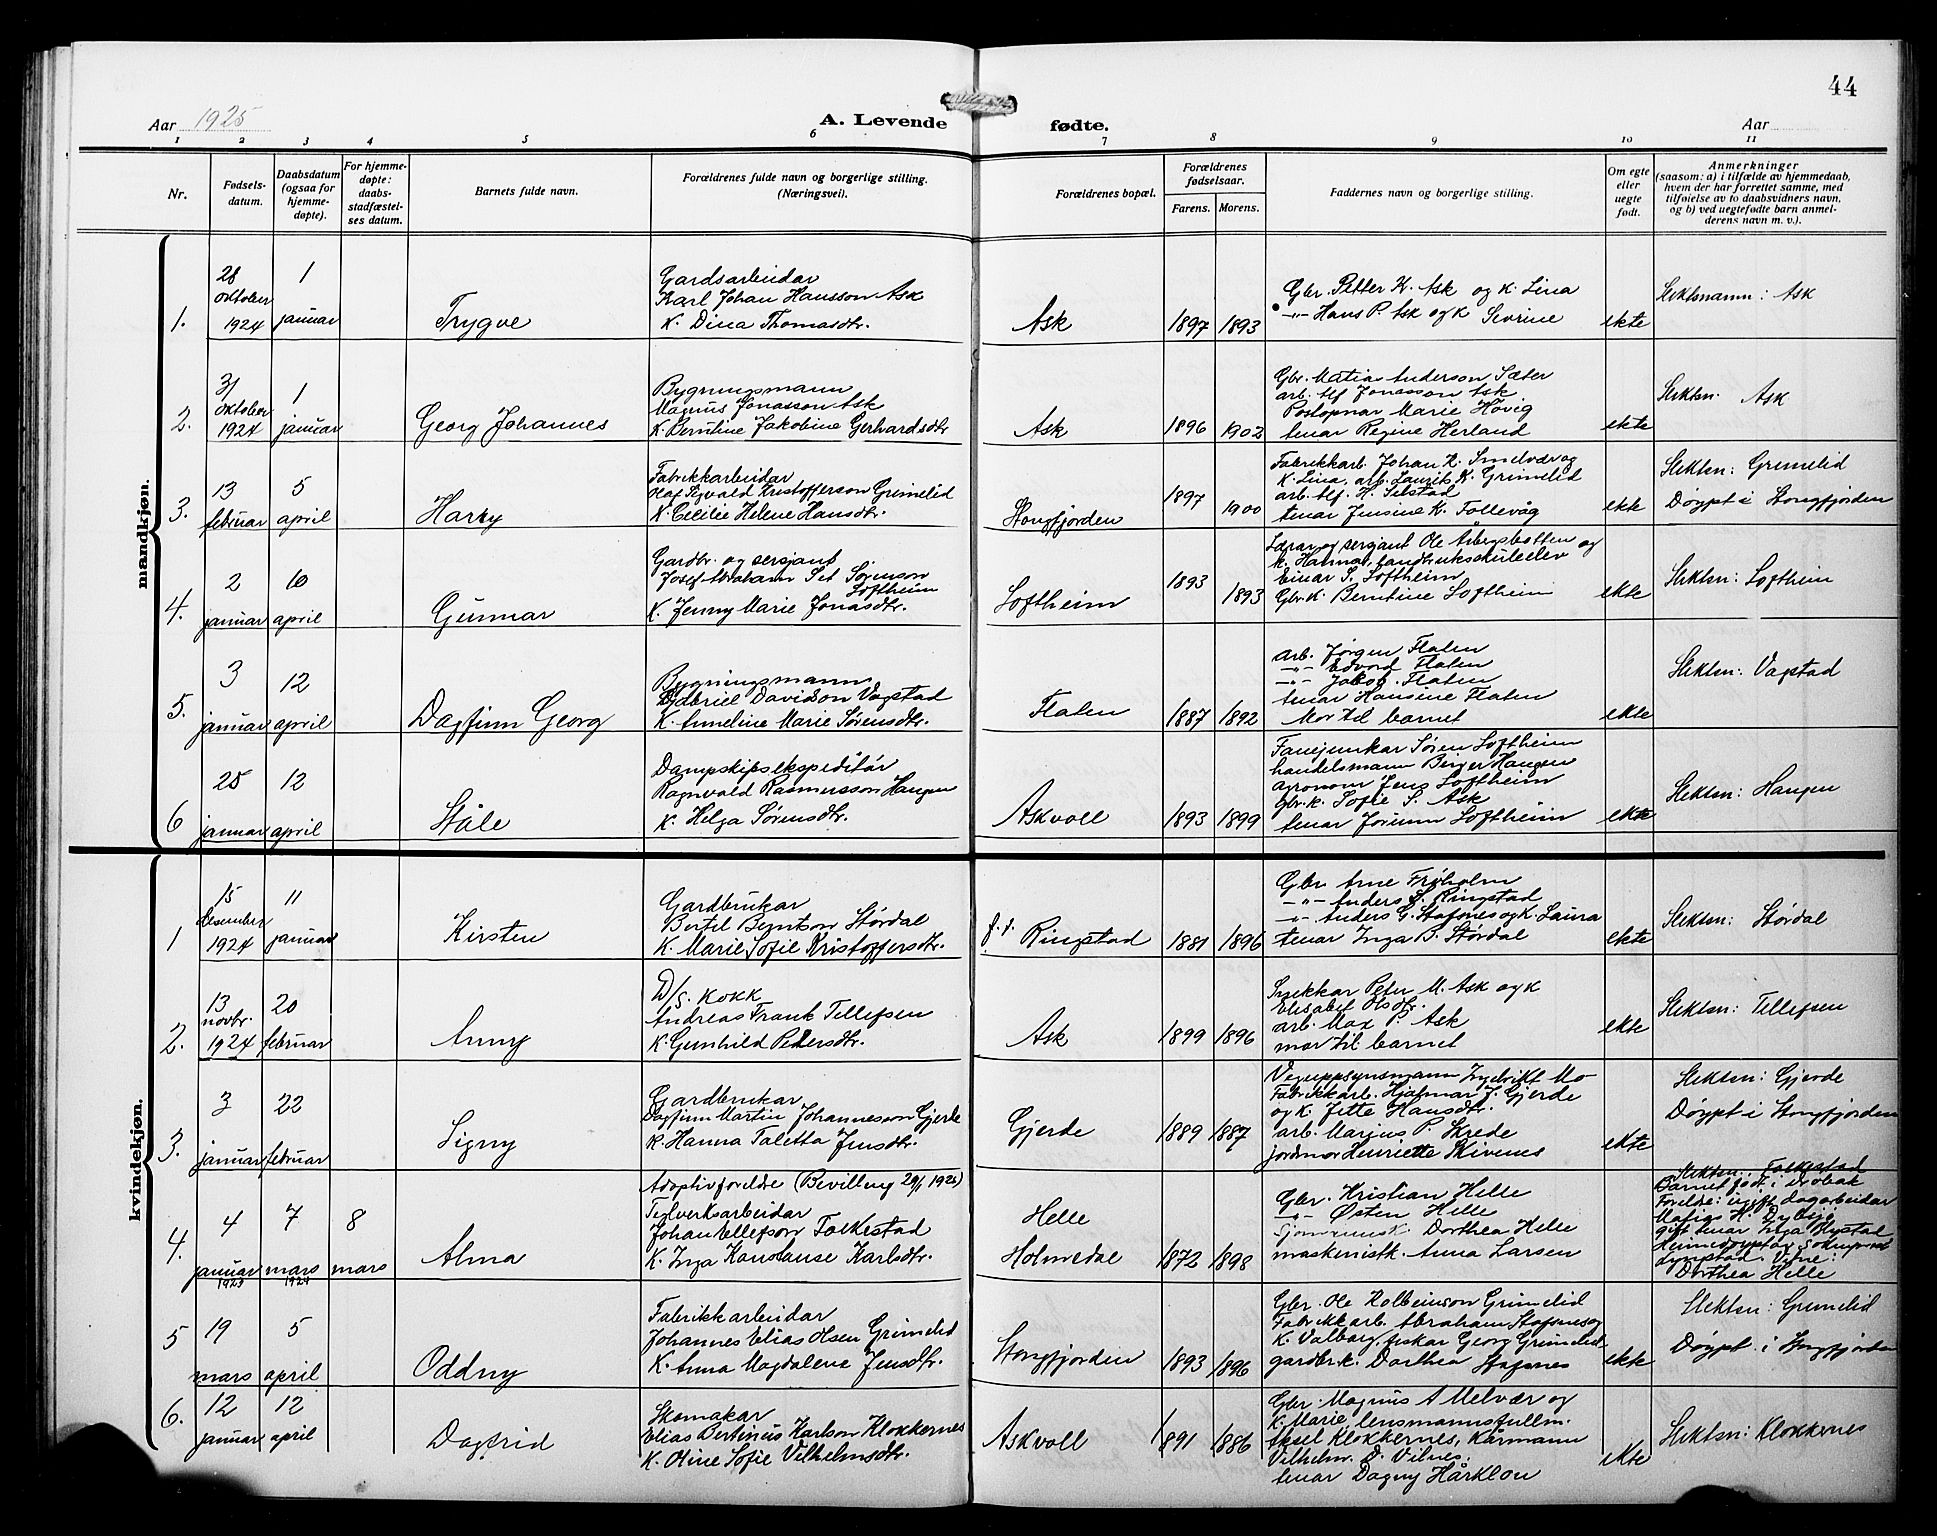 44
Aar 1925
A. Levende
fødte.
Aar
1 2 3 4 5 6 7 8 9 10 11
Nr.
Fødsels-
datum.
Daabsdatum
(ogsaa for
hjemme-
døpte).
For hjemme-
døpte:
daabs-
stadfæstel-
ses datum.
Barnets fulde navn.
Forældrenes fulde navn og borgerlige stilling.
(Næringsvei).
Forældrenes bopæl.
Forældrenes
fødselsaar.
Farens. Morens.
Faddernes navn og borgerlige stilling.
Om egte
eller
uegte
født.
Anmerkninger
(saasom: a) i tilfælde av hjemmedaab,
hvem der har forrettet samme, med
tilføielse av to daabsvidners navn,
og b) ved uegtefødte barn anmel-
derens navn m. v.).
mandkjøn.
1.
28
oktober
1924
1
januar
Trygve
Gardsarbeidar
Karl Johan Hansson Ask
K. Dina Thomasdtr.
Ask
1897 1893
Gbr. Petter K. Ask og K. Lina
-"- Hans P. Ask og K Sevrine
ekte
Slektsnamn: Ask
2.
31
oktober
1924
1
januar
Georg Johannes
Bygningsmann
Magnus Jonasson Ask
K. Berntine Jakobine Gerhardsdtr
Ask
1896 1902
Gbr. Matias Anderson Sæter
arb. Alf Jonasson Ask
Postopnar Marie Høvig
tenar Regine Herland
ekte
Slektsn: Ask
3.
13
februar
5
april
Harry
Fabrikkarbeidar
Olaf Sigvald Kristofferson Grimelid
K. Cecilie Helene Hansdtr.
Stongfjorden
1897 1900
Fabrikkarb. Johan K. Smelvær og
K. Lina, arb. Laurits K. Grimelid
arb. Alf. H. Silstad
tenar Jensine K. Follevåg
ekte
Slektsn: Grimelid
Døypt i Stongfjorden
4.
2
januar
10
april
Gunnar
Gardbr. og sersjant
Josef Abraham Set Sørenson
Loftheim
K. Jenny Marie Jonasdtr.
Loftheim
1893 1893
Lærar og sersjant Ole Årbergsbotten og
K. Hanna, landbrukskuleelev
Einar S. Loftheim
Gbr.K. Berntine Loftheim
ekte
Slektsn: Loftheim
5.
3
januar
12
april
Dagfinn Georg
Bygningsmann
Gabriel Davidson Vagstad
K. Anneline Marie Sørensdtr.
Flaten
1887 1892
Arb. Jørgen Flaten
-"- Edvard Flaten
-"- Jakob Flaten
tenar Hansine Flaten
Mor til barnet
ekte
Slektsn: Vagstad
6
25
januar
12
april
Ståle
Dampskipsekspeditör
Ragnvald Rasmusson Haugen
K. Helga Sørensdtr.
Askvoll
1893 1899
Fanejunkar Søren Loftheim
handelsmann Birger Haugen
agronom Jens Loftheim
Gbr.K. Sofie S. Ask
tenar Jorunn Loftheim
ekte
Slektsn: Haugen
kvindekjøn.
1
15
desember
1924
11
januar
Kirsten
Gardbrukar
Bertel Berntson Stördal
K. Marie Sofie Kristoffersdtr.
f.t. Ringstad
1881 1896
Gbr Arne Frøholm
-"- Anders S. Ringstad
-"- Anders G. Stafsnes og K. Laura
tenar Inga B. Stördal
ekte
Slektsn: Stördal
2.
13
novbr.
1924
20
februar
Anny
D/s. kokk
Andreas Frank Tellefsen
K. Gunhild Petersdtr.
Ask
1899 1896
Snikkar Peter M. Ask og K
Elisabet Olsdtr.
arb. Max P. Ask
mor til barnet
ekte
Slektsn: Tellefsen
3.
3
januar
22
februar
Signy
Gardbrukar
Dagfinn Martin Johanneson Gjerde
K. Hanna Taletta Jensdtr.
Gjerde
1889 1887
Veguppsynsmann Ingebrikt Mo
Fabrikkarb. Hjalmar J. Gjerde
og K. Jette Hansdtr.
arb. Marius P. Skrede
jordmor Henriette Skivenes
ekte
Slektsn: Gjerde
Døypt i Stongfjorden
4.
4
januar
1923
7
mars
1924
8
mars
Alma
Adoptivforeldre (Bevilling 29/1 1925)
Teglverksarbeidar
Johan Ellefson Folkestad
K. Inga Konstanse Karlsdtr.
Helle
Holmedal
1872 1898
Gbr. Kristian Helle
-"- Østen Helle
Dorthea Helle
maskenistk. Anna Larsen
Slektsn: Folkestad
Barnet født i Drøbak
Foreldre: ugift dagarbeidar
Dorthea Helle
5
19
mars
5
april
Oddny
Fabrikkarbeidar
Johannes Elias Olsen Grimelid
K. Anna Magdalene Jensdtr.
Stongfjorden
1893 1896
Gbr. Ole Kolbeinson Grimelid
Fabrikkarb. Abraham Stafsnes og
K. Valborg, fiskar Georg Grimelid
gardbr.k. Dorthea Stafsnes
ekte
Slektsn: Grimelid
Døypt i Stongfjorden
6.
12
januar
12
april
Dagfrid
Skomakar
Elias Bertinius Karlson Klokkernes
K. Oline Sofie Vilhelmsdtr.
Askvoll
1891 1886
Gbr. Magnus A Melvær og
K. Marie, lensmannsfullm.
Aksel Klokkernes, Kårmann
Vilhelm D. Vilnes,
tenar Dagny Hårklou
ekte
Slektsn: Klokkernes